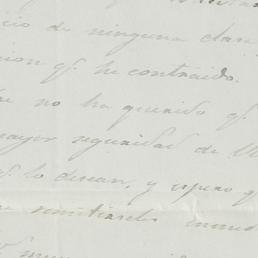 cio de ninguna clase
cion qe. he contraido.
no ha querido qe.
mayor seguridad de
lo desean, y espero q
remitirselos inmed